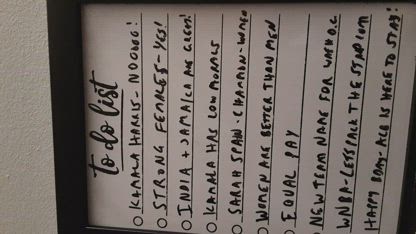 to do list
KAMALA HARRIS - NOOOOO!
STRONG FEMALES - YES!
INDIA + JAMAICA ARE GREAT!
KAMALA HAS LOW MORALS
SARAH SPAIN - CHAMPION - WOMEN
WOMEN ARE BETTER THAN MEN
EQUAL PAY
NEW TEAM NAME FOR WASH D.C.
WNBA - LETS PACK THE STADIUM
HAPPY BDAY - ACB IS HERE TO STAY!